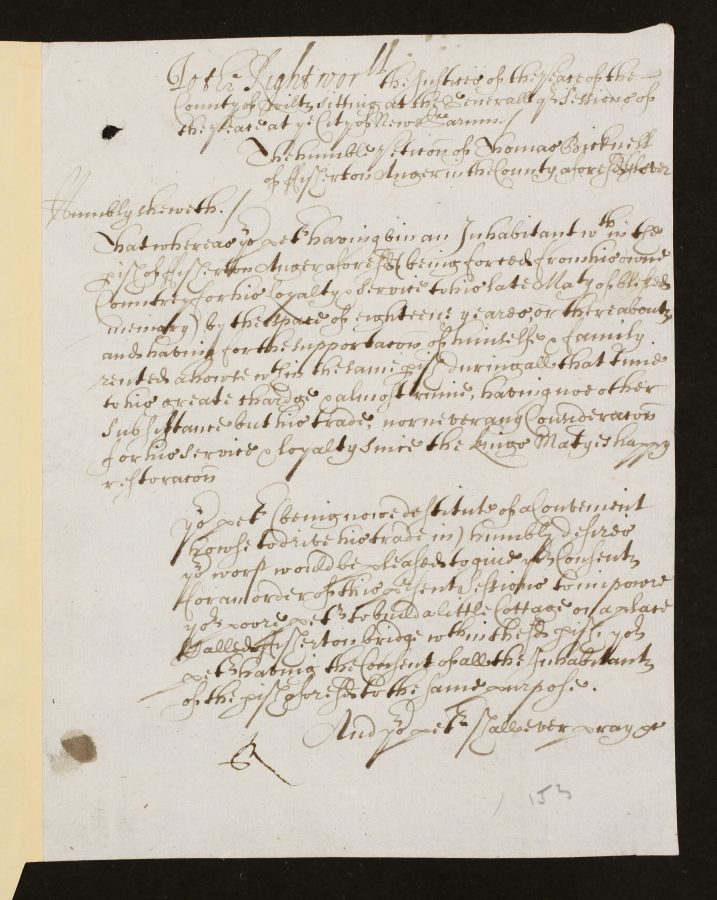 To the Right worll the Justices of the Peace of the
County of Wiltes sitting at the Generall qr Sessions of
the Peace at ye City of New Sarum./
The humble peticon of Thomas Bicknell
of ffisherton Anger in the County aforesd
Humbly sheweth./
That whereas yor petr having bin an Inhabitant wthin the
pish of ffisherton Anger aforesd (being forced from his owne
Countrey for his Loyalty & Service to his late Maty of blessed
memory) by the space of eighteene yeares or thereaboutes
and having for the supportacon of himselfe & family
rented a howse wthin the same pish during all that time
to his greate chardge & almost ruine, having noe other
subsistance but his trade, nor never any Consideracon
for his service & loyalty since the kings Matyes happy
restoracon
yor petr (being nowe destitute of a Convenient
howse to drive his trade in) humbly desires
yor worps would be pleased to give yor Consents
for an order of this psent Sessions to impowre
yor poore petr to build a little Cottage on a place
Called ffisherton bridge wthin the sd pish, yor
petr having the Consent of all the Inhabitants
of the pish aforesd to the same purpose.
And yor petr shall ever pray &c
153